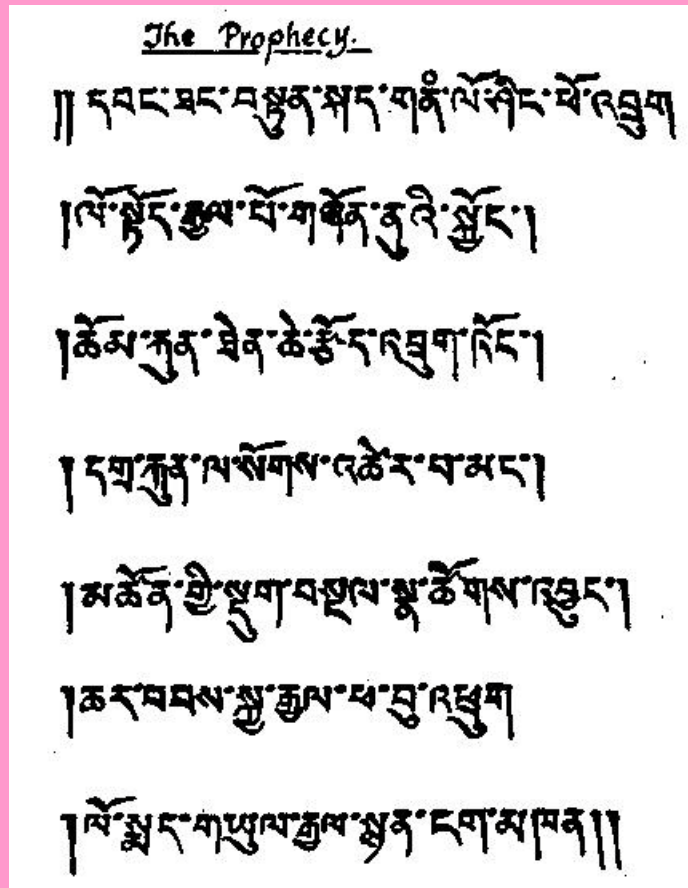 The Prophecy.
༎ དབང་ཐང་བསྟུན་སྐད་གནཾ་ལོ་ཤིང་ཕོ་འབྲུག
།ལོ་སྟོད་རྒྱལ་པོ་གཞོན་ནུའི་སྐྱོང་།
།ཆོམ་རྐུན་ཐེན་ཆེ་རྩོད་འཁྲུག་འོང་།
།དགྲ་རྐུན་ལ་སོགས་འཚེར་བ་མང་།
།མཚོན་གྱི་སྡུག་བསྔལ་སྣ་ཚོགས་འབྱུང་།
།ཆར་བབས་སྐྱ་རྒྱལ་ཕ་བུ་འཕྲུག
།ལོ་སྨད་གཡུལ་རྒྱལ་སྙན་ངག་མཁན།།